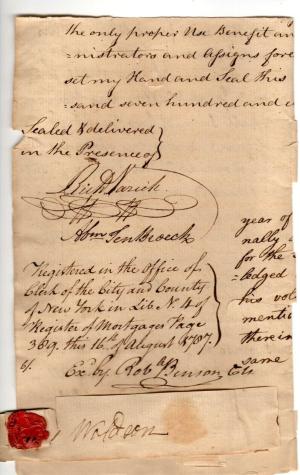 the only proper Use Benefit an
=nistrators and assigns fore
set my Hand and Seal this
=sand seven hundred and e
Sealed & delivered
in the Presence of
Rich'd Varick
Abm Ten Broeck
year of
nally
for the
=ledged
his vol
mentio
therein
same
Registered in the Office of
Clerk of the City and County
of New York in Lib. N. 4 of
Register of Mortgages Page
389. this 16th of August 1787.
Ex'd by Rob Benson Clk
Woldron